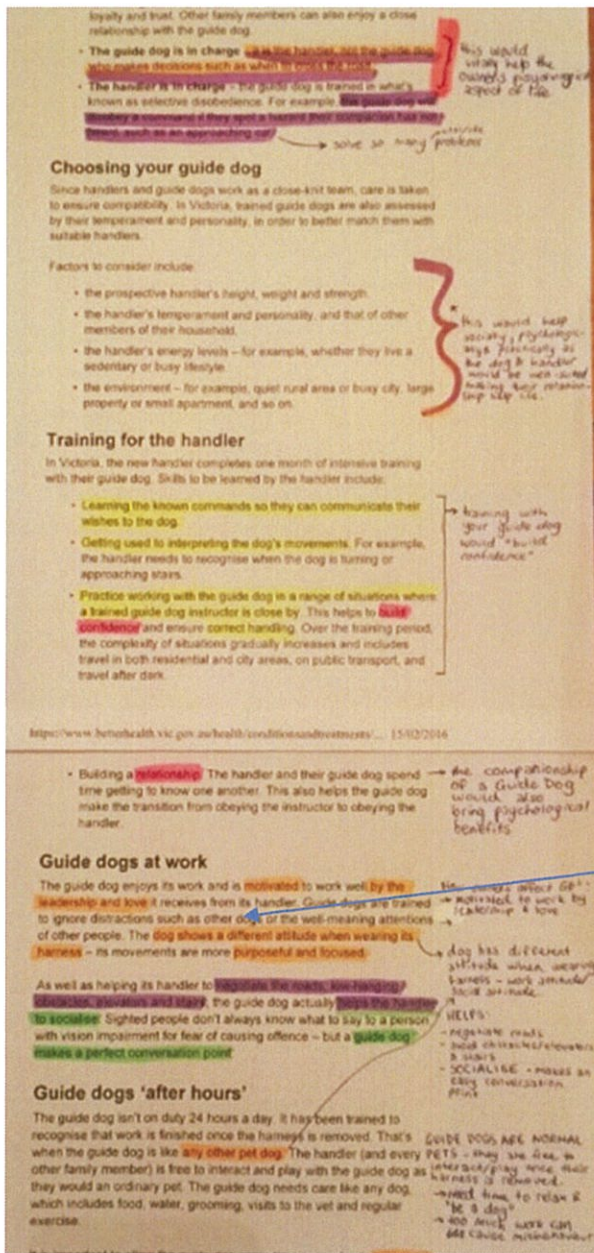 loyalty and trust. Other family members can also enjoy a close
relationship with the guide dog.
• The guide dog is in charge – it is the handler, not the guide dog,
who makes decisions such as when to cross the road.
• The handler is in charge – the guide dog is trained in what's
known as selective disobedience. For example, the guide dog will
disobey a command if they spot a hazard their companion has not
heard, such as an approaching car.
this would
help the
owners psychological
aspect of life
→ solve so many problems
Choosing your guide dog
Since handlers and guide dogs work as a close-knit team, care is taken
to ensure compatibility. In Victoria, trained guide dogs are also assessed
by their temperament and personality, in order to better match them with
suitable handlers.
Factors to consider include:
• the prospective handler's height, weight and strength.
• the handler's temperament and personality, and that of other
members of their household.
• the handler's energy levels – for example, whether they live a
sedentary or busy lifestyle.
• the environment – for example, quiet rural area or busy city, large
property or small apartment, and so on.
this would help
the dog & handler
would be well-suited
making their relation-
ship
Training for the handler
In Victoria, the new handler completes one month of intensive training
with their guide dog. Skills to be learned by the handler include:
• Learning the known commands so they can communicate their
wishes to the dog.
• Getting used to interpreting the dog's movements. For example,
the handler needs to recognise when the dog is turning or
approaching stairs.
• Practice working with the guide dog in a range of situations where
a trained guide dog instructor is close by. This helps to build
confidence and ensure correct handling. Over the training period,
the complexity of situations gradually increases and includes
travel in both residential and city areas, on public transport, and
travel after dark.
→ training with
your guide dog
would "build
confidence"
https://www.betterhealth.vic.gov.au/health/conditionsandtreatments/... 15/02/2016
• Building a relationship. The handler and their guide dog spend
time getting to know one another. This also helps the guide dog
make the transition from obeying the instructor to obeying the
handler.
→ the companionship
of a Guide Dog
would also
bring psychological
benefits
Guide dogs at work
The guide dog enjoys its work and is motivated to work well by the
leadership and love it receives from its handler. Guide dogs are trained
to ignore distractions such as other dogs or the well-meaning attentions
of other people. The dog shows a different attitude when wearing its
harness – its movements are more purposeful and focused.
How owners affect GD
→ motivated to work by
leadership & love
→ dog has different
attitude when wearing
harness - work attitude/
social attitude
As well as helping its handler to negotiate the roads, low-hanging
obstacles, elevators and stairs, the guide dog actually helps the handler
to socialise. Sighted people don't always know what to say to a person
with vision impairment for fear of causing offence – but a guide dog
makes a perfect conversation point.
HELPS:
- negotiate roads
- avoid obstacles/elevators
& stairs
- SOCIALISE - makes an
easy conversation
point
Guide dogs 'after hours'
The guide dog isn't on duty 24 hours a day. It has been trained to
recognise that work is finished once the harness is removed. That's
when the guide dog is like any other pet dog. The handler (and every
other family member) is free to interact and play with the guide dog as
they would an ordinary pet. The guide dog needs care like any dog,
which includes food, water, grooming, visits to the vet and regular
exercise.
GUIDE DOGS ARE NORMAL
PETS - they are free to
interact/play once their
harness is removed.
→ need time to relax &
"be a dog"
→ too much work can
cause misbehaviour